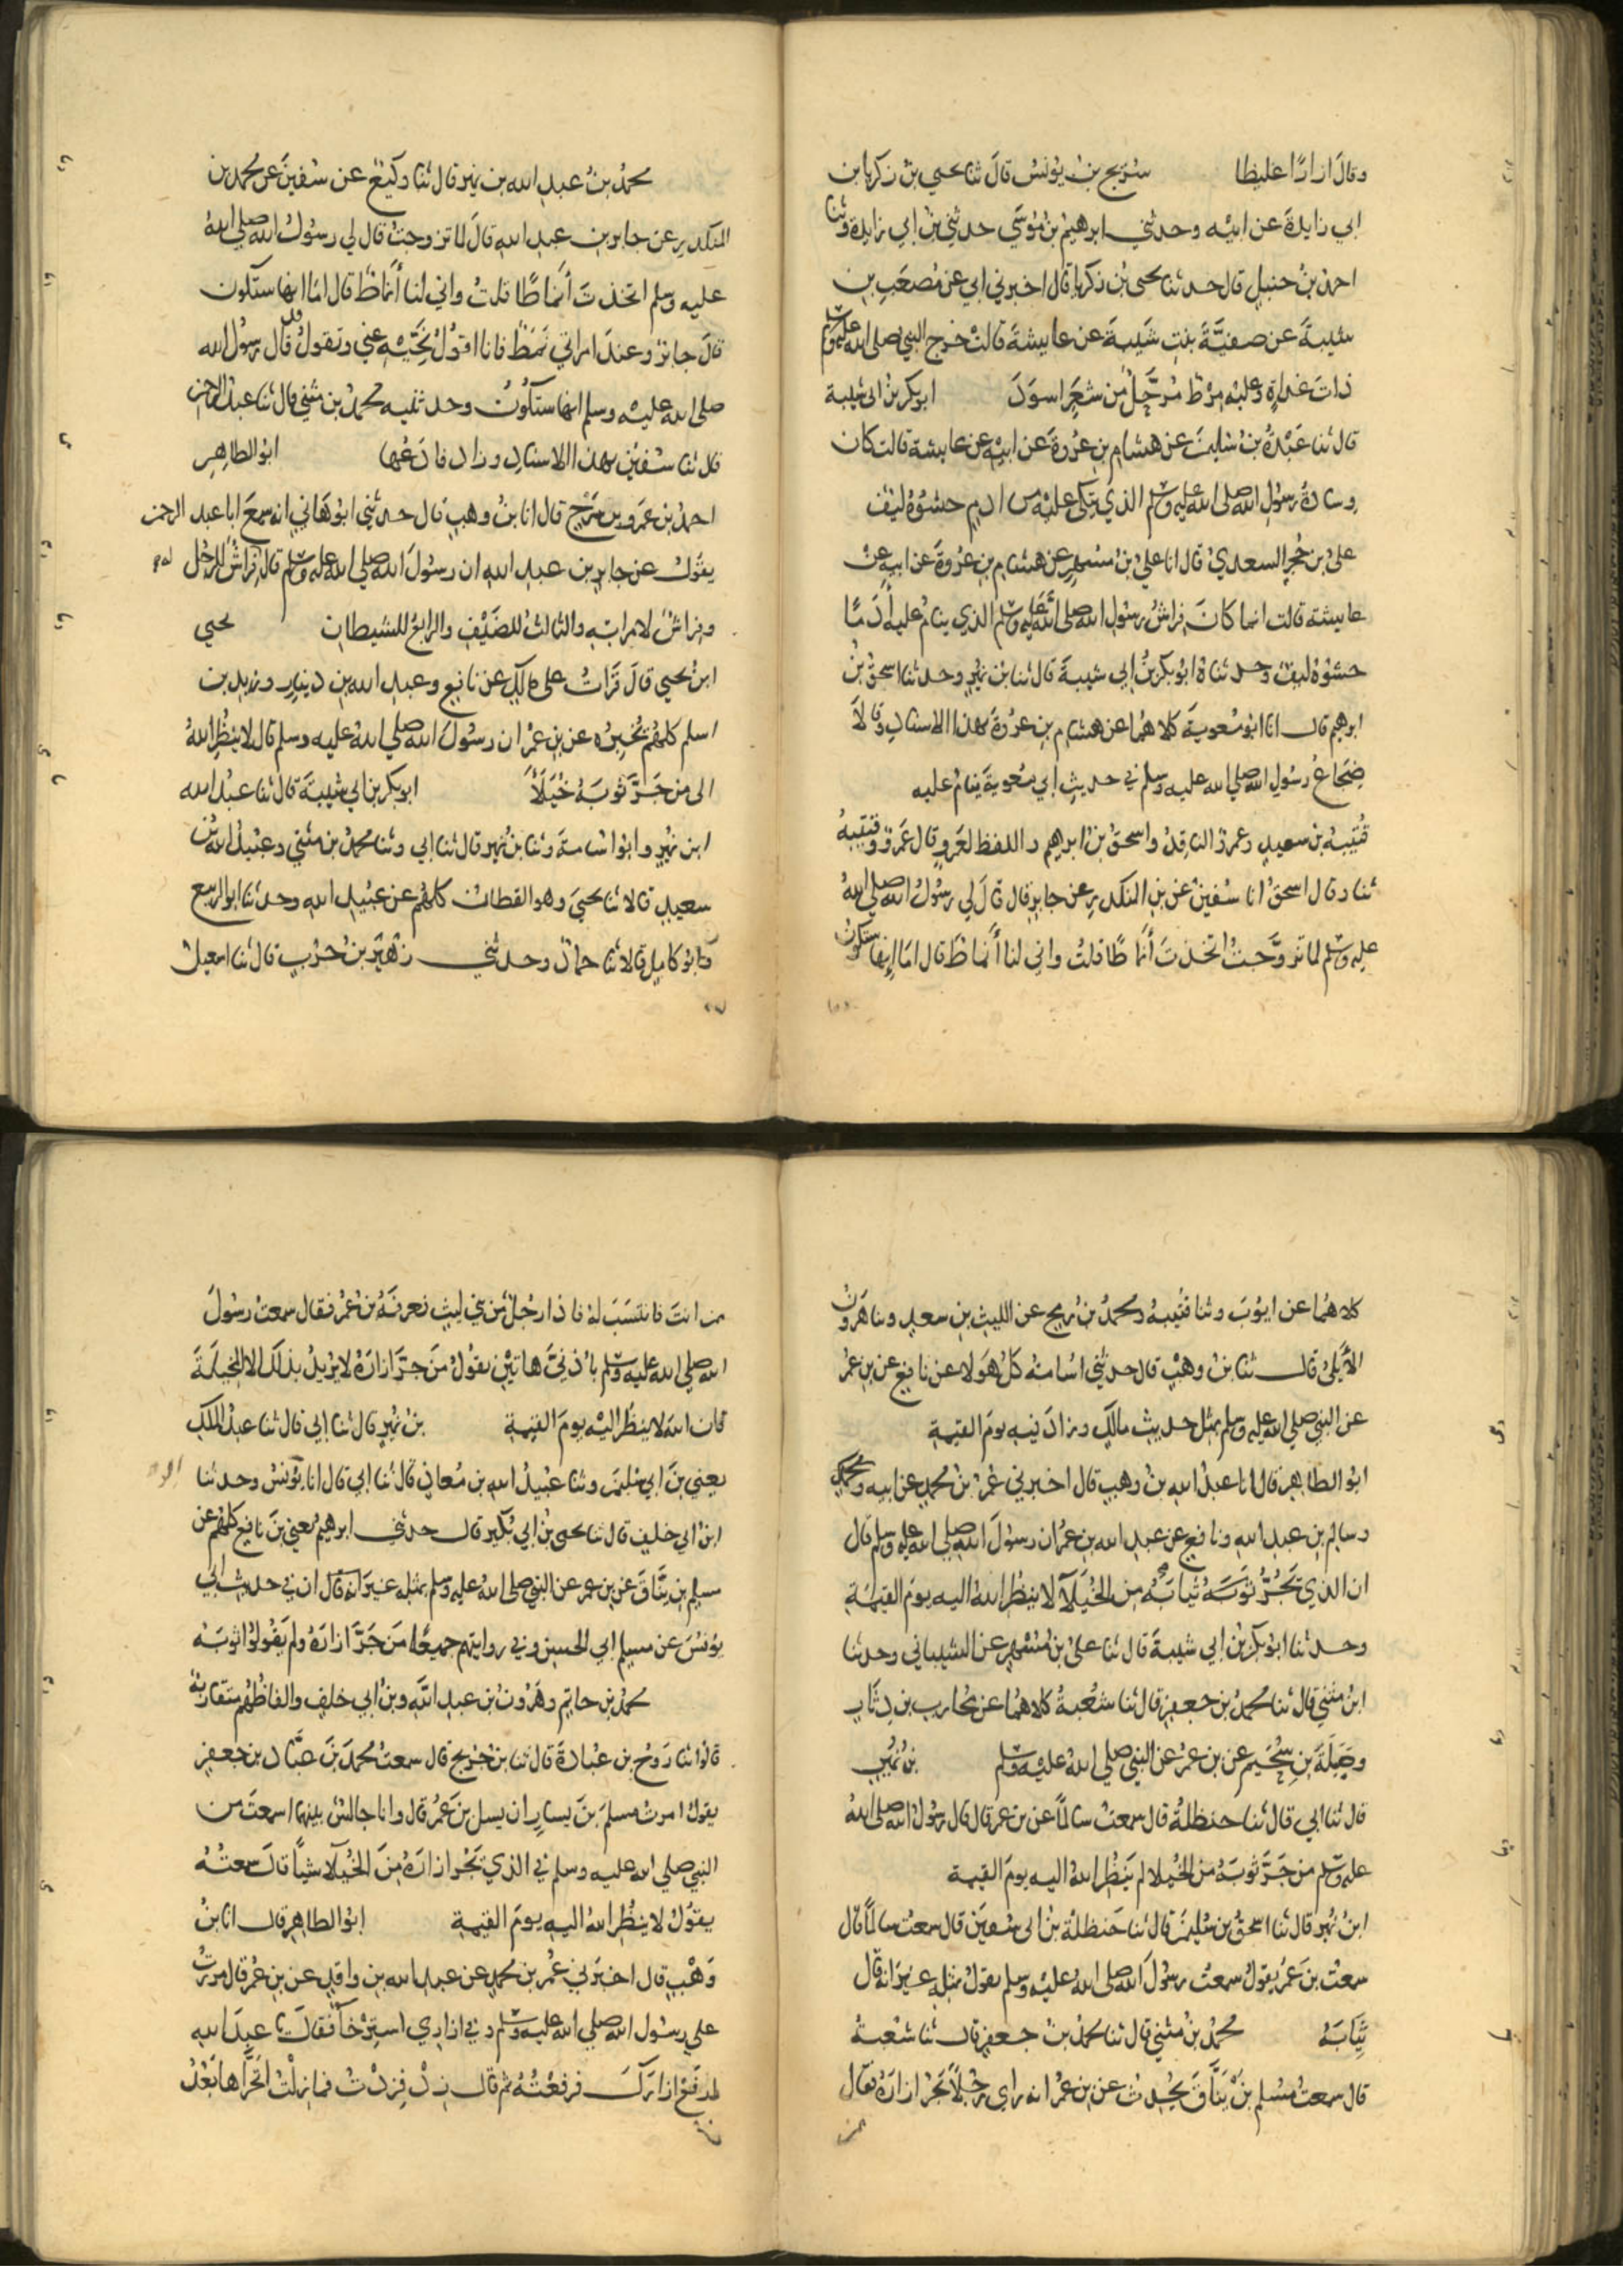 وقال ازارًا غليظا سُرَيج بن يُونسُ قالَ ثنا يحيي بنُ زكريا بن
ابي زايدةَ عن ابيْه وحدثني ابرهيمُ بنُ مُوسَي حدثني بنُ ابي زايدة وثنا
احمدُ بنُ حنبلٍ قال حدثنا يحيى بْن زكريا قال اخبرني ابي عن مُصعَبِ بن
شيبةَ عن صفيَّةَ بنتِ شيبةَ عن عايشةَ قالتْ خرج النبي صلى الله عليه وسلم
ذاتَ غداةٍ وعليْه مِرْط مُرَحَّلٌ من شعَرٍ اسوَدَ ابوبكر بن ابي شيبة
قال ثنا عَبْدَةُ بنُ سُليمنَ عن هشامِ بنِ عُروةَ عن ابيْهِ عن عايشة قالت كان
وِسَادةُ رسُولِ الله صلى الله عليه وسلم الذي يتكى عليْه من ادمٍ حشوُهُ ليفٌ
علىُ بن حُجرٍ السعديُ قال انا عليُ بنُ مسْهرٍ عن هشام بنِ عُروةَ عن ابيه عنْ
عايشة قالت انما كانَ فِراشُ رسُولِ الله صلى الله عليه وسلم الذي ينامُ عليه أدمًا
حشوُهُ ليفٌ وحدثناهُ ابُوبكر بنُ ابي شيبةَ قال ثنا بن نميرٍ وحدثنا اسحقُ بنُ
ابرهيم قال انا ابُو مُعوية كلاهمُا عن هشام بنِ عُروةَ بهذا الاسنادِ وقالاَ
ضِجَاعُ رسُولِ الله صلى الله عليه وسلم في حديثِ ابي مُعويةَ ينامُ عليه
قُتيبةُ بن سعيدٍ وعمرٌو الناقِدُ واسحقُ بنُ ابرهيم واللفظ لعَمرٍو قال عَمرٌو وقتيبةُ
ثنا وقال اسحقُ انا سُفينُ عن بنِ المنكدرِ عن جابرٍ قال قالَ لي رسُولُ الله صلى اللهُ
عليه وسلم لما تزوَّجتُ اتخذتَ أنماطًا قلتُ واني لنا أنماطَ قال امَا إنها ستكون
محمدُ بنُ عبدِ الله بن نميرٍ قال ثنا وكيعٌ عن سُفينَ عن محمد بن
المنكدرِ عن جابر بن عبدِ اللهِ قالَ لما تزوجتُ قال لي رسوُلُ الله صلى اللهُ
عليه وسلم اتخذتَ أنماطًا قلتُ واني لنا أنماطٌ قال امَا انها ستكون
قالَ جابرٌ وعندَ امراتي نمَطٌ فانا اقولُ نَحِّيْه عني وتقولُ قد قال رسولُ الله
صلى الله عليْه وسلم انها ستكونُ وحدثنيه محمدُ بن مثني قال ثنا عبدُ الرحمن
قال ثنا سُفينُ بهذا الاسنادِ وزاد فادَعُها ابوُ الطاهِرِ
احمدُ بن عَمرِو بن سَرْحٍ قال انا بنُ وهبٍ قال حدثني ابُوهَانيٍ انه سمِعَ ابا عبد الرحمن
يقولُ عن جابرِ بن عبدِ اللهِ ان رسُولَ الله صلى الله عليه وسلم قال فِرَاشٌ للرجُل
وفِراشٌ لامراتِه والثالثُ للضَيْفِ والرابعُ للشيطانِ يحيي
ابنُ يحيي قالَ قراتُ على مالكٍ عن نافعٍ وعبدِ الله بن دينارٍ وزيد بن
اسلم كلهُم يُخبرُه عن بنِ عُمرَ ان رسُولَ الله صلى اللهُ عليه وسلم قال لا ينظُر اللهُ
الى من جَرَّ ثوبَهُ خُيَلآءَ ابوبكر بن ابي شيبةَ قال ثنا عبدُ الله
ابن نميرٍ وابوُ اسُامةَ وثنا بنُ نميرٍ قال ثنا ابي وثنا محمدُ بن مثني وعبَيدُ الله بن
سعيدٍ قالا ثنا يحيىَ وهو القطان كلهُم عن عبَيدِ اللهِ وحدثنا ابو الربيع
وابُو كاملٍ قالا ثنا حمادٌ وحدثني زهَيرُ بنُ حَربٍ قال ثنا اسمعيل
كلاهمُا عن ايوُبَ وثنا قتيبةُ ومحمدُ بنُ رُمحٍ عن الليثِ بنِ سعدٍ وثنا هَرونُ
الأَيلىُ قال ثنا بنُ وهبٍ قال حدثني اسُامةُ كلُ هَوُلا عن نافعٍ عن بنِ عمُر
عن النبي صلى الله عليه وسلم بمثل حديثِ مالكٍ وزادَ فيه يومَ القيمةِ
ابوُ الطاهِر قال انا عبدُ الله بنُ وهبٍ قال اخبرني عُمرُ بنُ محمدٍ عن ابيه
وسالم بن عبدِ اللهِ ونافعٍ عن عبدِ الله بنِ عمُر ان رسُولَ الله صلى الله عليه وسلم قال
ان الذي يَجُرُّ ثيابَهُ من الخُيَلآ لا ينظُر اللهُ اليه يومَ القيمَةِ
وحدثنا ابُوبكر بنُ ابي شيبةَ قال ثنا علىُ بنُ مُسْهرٍ عن الشيباني وحدثنا
ابنُ مثني قال ثنا محمدُ بن جعفرٍ قال ثنا شُعبةُ كلاهمُا عن مُحاربِ بن دِثارٍ
وجَبَلَةَ بنِ سُحَيمٍ عن بن عمرُ عن النبي صلى اللهُ عليْه وسلم بنُ نمُيرٍ
قال ثنا ابي قال ثنا حنظلةُ قال سمعتُ سالمًا عن بن عمر قال قال رسُولُ الله صلى اللهُ
عليه وسلم من جَرَّ ثوبَهُ من الخُيلا لم يَنظُر اللهُ اليه يومَ القيمة
ابنُ نميرٍ قال ثنا اسحقُ بن سُليمنَ قال ثنا حَنظلةُ بنُ ابي سُفينَ قال سمعتُ سالمًا قال
سمعتُ بنَ عُمرَ يقولُ سمعتُ رسُولَ الله صلى اللهُ عليْه وسلم يقولُ مثلهِ غيرَ انه قال
ثيابَهُ محمدُ بنُ مثني قال ثنا محمدُ بنُ جعفرٍ قال ثنا شعْبةُ
قال سمعتُ مُسلمَ بنَ يَنَّاقَ يُحدثُ عن بنِ عُمرَ انه راي رجُلاً يجَر ازارَهُ فقال
من انتَ فانتسَبَ لهُ فاذا رجُلٌ من بني ليثٍ فعرفَهُ بنُ عُمرُ فقال سمعتُ رسُولَ
الله صلى الله عليه وسلم باُذنيَّ هاتيْنِ يقولُ مَن جرَّ ازارَهُ لا يُريدُ بذلك الا المَخيلَةَ
فان الله لا ينظُر اليْه يومَ القيمة بنُ نميرٍ قال ثنا ابي قال ثنا عبدُ الملك
يعني بنَ ابي سُليمنَ وثنا عبيدُ الله بن مُعاذٍ قال ثنا ابي قال انا بوُ يونسُ وحدثنا
ابنُ ابي خلفٍ قال ثنا يحيى بنُ ابي بُكَيرٍ قال حدثني ابرهيمُ يعني بنَ نافعٍ كلهُم عن
مسلمِ بنِ يَنَّاقَ عن بن عمر عن النبي صلى اللهُ عليه وسلم بمثله غيرَ انه قال ان في حديثِ ابي
يوُنسَ عن مسلمٍ ابي الحسن وفي روايتهم جميعًا من جَرَّ ازارَهُ ولم يَقُولوُا ثوبَهُ
محمدُ بن حاتمٍ وهَرُونُ بن عبدِ اللهِ وبنُ ابي خلفٍ والفاظُهم متقاربةٌ
قالوُا ثنا رَوحُ بن عُبادةَ قال ثنا بنُ جُريجٍ قال سمعتُ محمدَ بنَ عَبَّادِ بن جعفرٍ
يقولُ امرتُ مسلمَ بنَ يسارٍ ان يسل بنَ عُمرُ قال وانا جالسٌ بينهما اسمعتَ من
النبي صلى الله عليه وسلم في الذي يَجُر ازارَهُ مِنَ الخُيَلآ شيئًا قال سمعتُهُ
يقوُلُ لا ينظُر اللهُ اليه يومَ القيمة ابوُ الطاهِر قال انا بنُ
وَهْبٍ قال اخبرني عُمرُ بن محمدٍ عن عبدِ الله بن واقدٍ عن بنِ عمُرَ قال مررتُ
علي رسُول الله صلى الله عليْه وسلم وفي ازاري استرخآ فقال يا عبدَ الله
ارفَعْ ازارَكَ فرفعْتُهُ ثم قال زِدْ فِزدْتُ فما زلْتُ اتحَرَّاها بَعْدُ